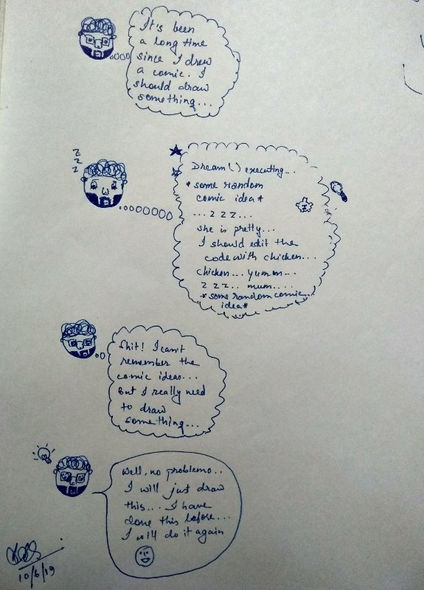 It's been
a long time
since I drew
a comic. I
should draw
something...
z
z
z
Dream() executing...
*some random
comic idea*
...z z z...
she is pretty...
I should edit the
code with chicken...
chicken... yumm...
z z z.. mum....
*some random comic
idea*
Shit! I can't
remember the
comic ideas...
But I really need
to draw
something...
Well, no problemo..
I will just draw
this... I have
done this before...
I will do it again
10/6/19